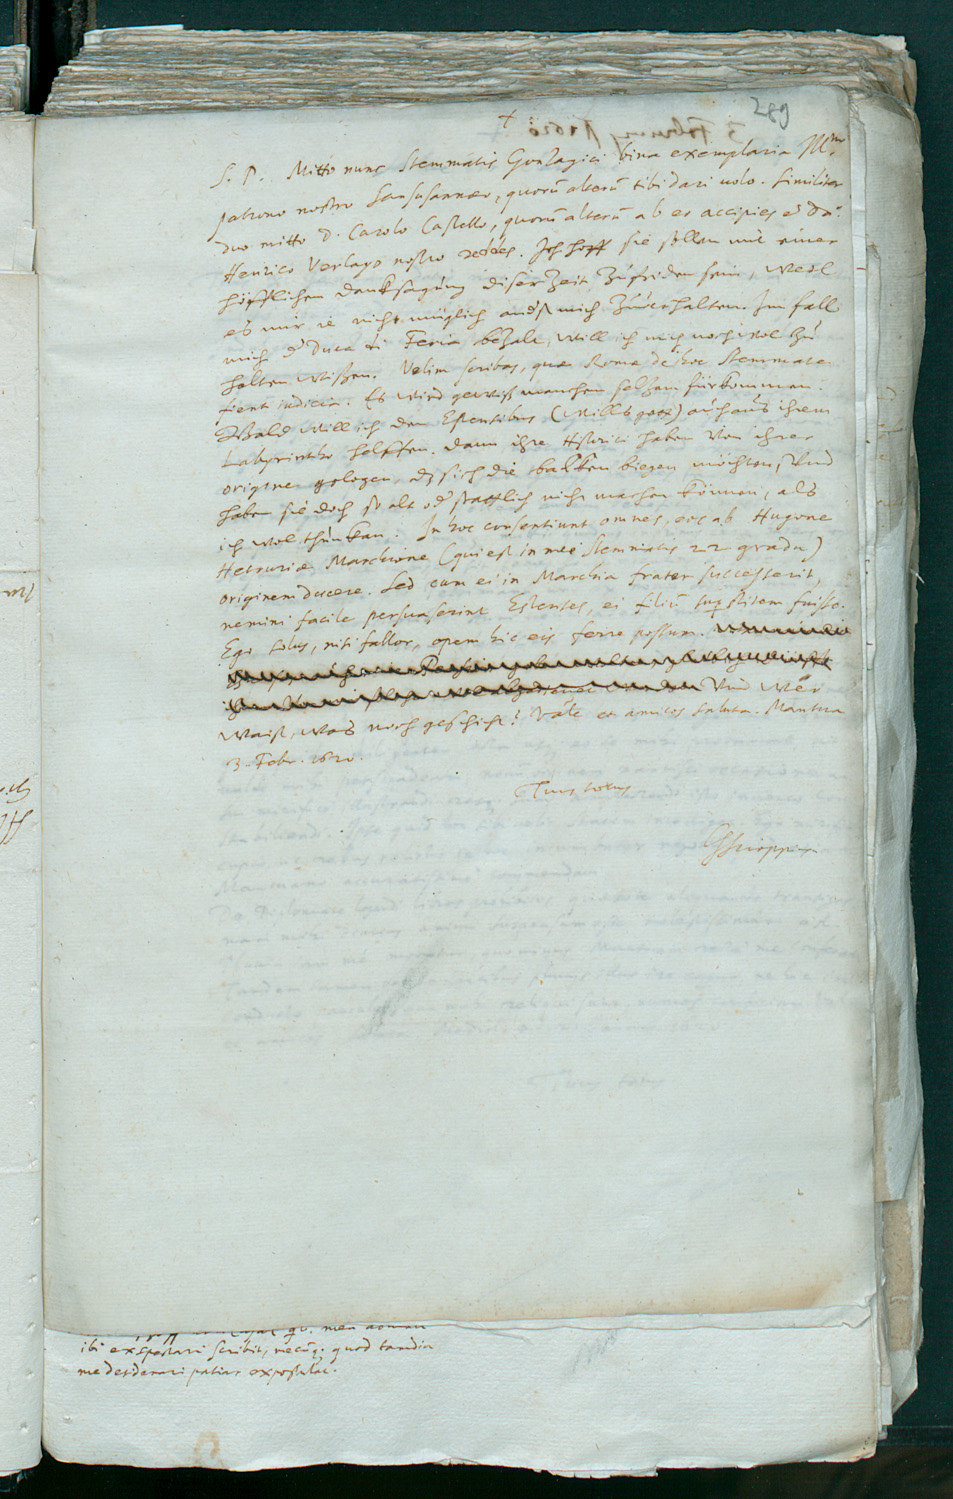 289
+
S. P. Mitto nunc Stemmatis Gonzagici bina exemplaria Illmo
patrono nostro Sansusannae, quorū alterū tibi dari uolo. Similiter
duo mitto D. Carolo Castello, quorū alterū ab eo accipies et Dn.
Henrico Verlago nostro reddes. Ich hoff sie sollen mit einer
höfflichen danksagung diser Zeit Zufriden sein, weil
es mir ie nicht müglich anderst mich Zuuerhalten. Im fall
mich der Duca di Feria bezalt, will ich mich noch wol Zu
halten wissen. Velim scribas, quae Romae de hoc Stemmate
fient iudicia. Es wird gewiß manchem selzam fürkommen.
Bald will ich den Estensibus (wills gott) auch aus ihrem
Labyrintho helffen. dann ihre Historici haben von ihrer
origine gelogen, dz sich die balken biegen möchten, Vnd
haben sie doch so alt vnd stattlich nicht machen können, als
ich wol thun kan. In hoc consentiunt omnes, eos ab Hugone
Hetruriae Marchione (qui est in meo Stemmatis 22 gradu)
originem ducere. Sed cum ei in Marchia frater successerit,
nemini facile persuaserint Estenses, ei filiū suꝑstitem fuisse.
Ego solus, nisi fallor, opem hic eis ferre possum.
Vnd wer
waist, was noch geschicht? Vale et amicos saluta. Mantua
3. Febr. 1620.
Tuus totus
GScioppius
qu. meu
ibi exspectari scribit, mecūq; quod tamdiu
me desiderari patiar expostulat.